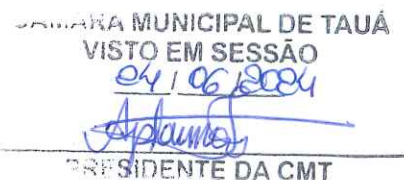 CÂMARA MUNICIPAL DE TAUÁ
VISTO EM SESSÃO
04 / 06 / 2024
PRESIDENTE DA CMT